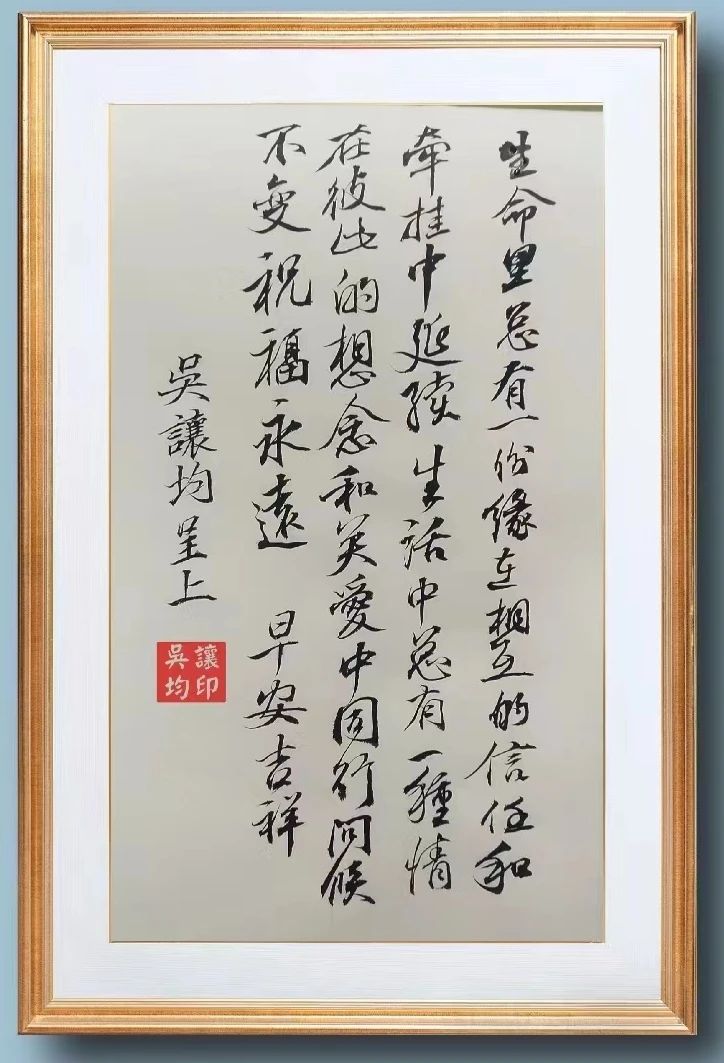 生命里总有一份缘在相互的信任和
牵挂中延续生活中总有一種情
在彼此的想念和关愛中同行问候
不变祝福永遠 早安吉祥
吳讓均呈上
讓印
吳均